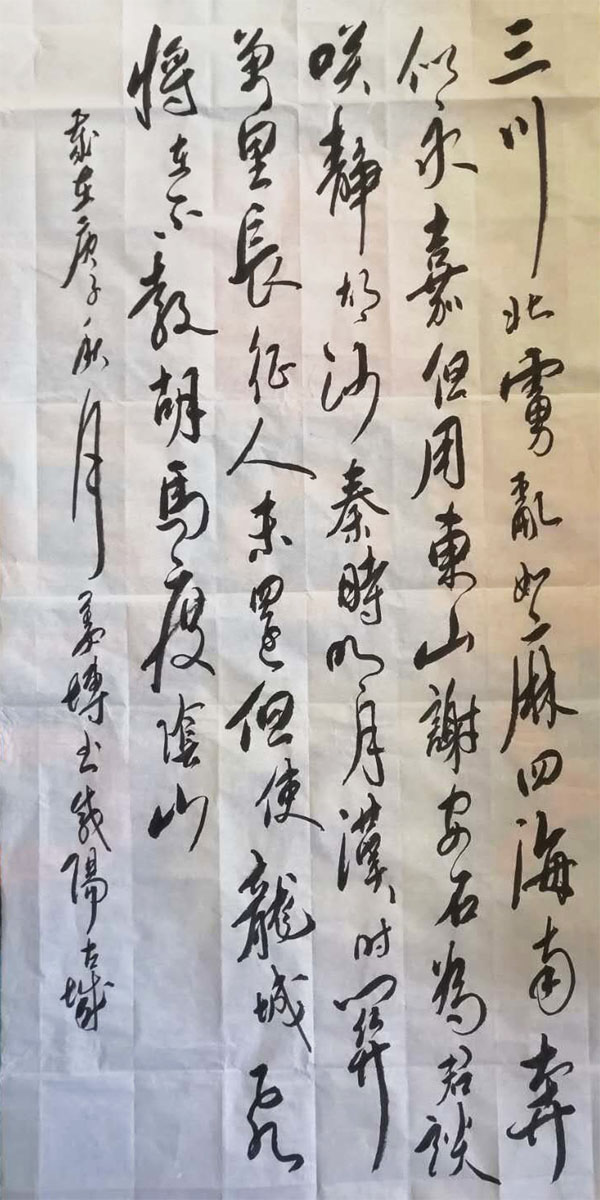 三川北虜亂如麻四海南奔
似永嘉但用東山謝安石為君談
咲靜胡沙秦時明月漢時関
萬里長征人未還但使龍城飛
將在不教胡馬度陰山
歲在庚子秋月 博书咸陽古城